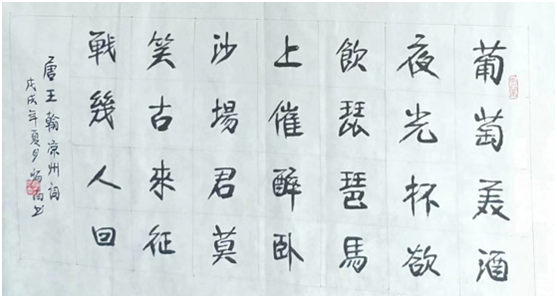 葡萄美酒
夜光杯欲
飲琵琶馬
上催醉卧
沙場君莫
笑古來征
戰幾人回
唐王翰凉州词
戊戌年夏月书